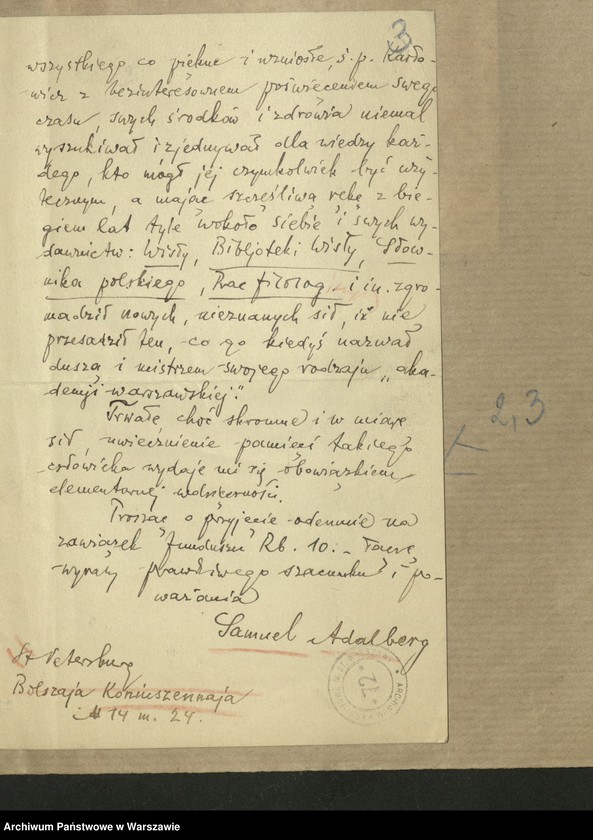 3
wszystkiego co piękne i wzniosłe, ś.p. Karło-
wicz z bezinteresownem poświęceniem swego
czasu, swych środków i zdrowia niemal
wyszukiwał i zjednywał dla wiedzy każ-
dego, kto mógł jej czymkolwiek być uży-
tecznym, a mając szczęśliwą rękę z bie-
giem lat tyle wokoło siebie i swych wy-
dawnictw: Wisły, Bibljoteki Wisły, Słow-
nika polskiego, Prac filolog. i in. zgro-
madził nowych, nieznanych sił, iż nie
przesadził ten, co go kiedyś nazwał
duszą i mistrzem swojego rodzaju „aka-
demji warszawskiej".
Trwałe, choć skromne i w miarę
sił, uwiecznienie pamięci takiego
człowieka wydaje mi się obowiązkiem
elementarnej wdzięczności.
Prosząc o przyjęcie odemnie na
zawiązek "funduszu" Rb. 10.– łączę
wyrazy prawdziwego szacunku i po-
ważania
Samuel Adalberg
St Petersburg
Bolszaja Koniuszennaja
14 m. 24.
2,3
72
Archiwum Państwowe w Warszawie